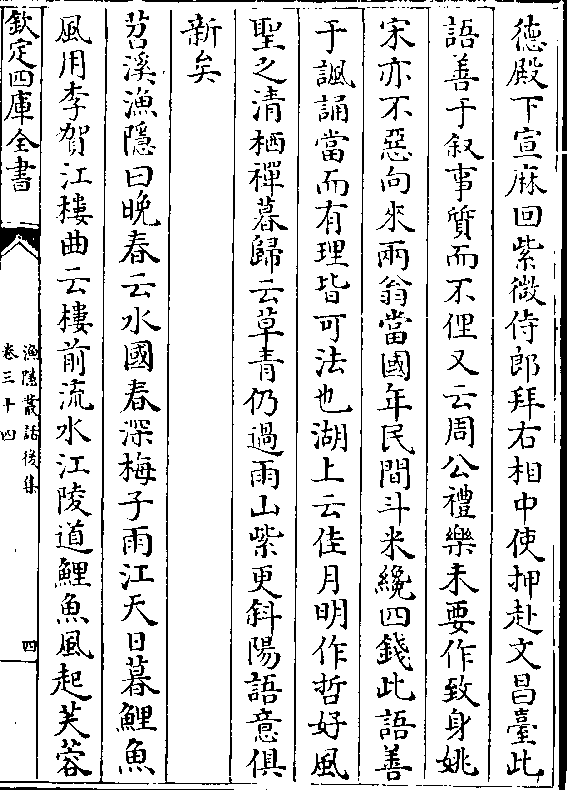 德殿下宣麻回紫微侍郎拜右相中使押赴文昌臺此
語善于叙事質而不俚又云周公禮樂未要作致身姚
宋亦不惡向來兩翁當國年民間斗米纔四錢此語善
于諷誦當而有理皆可法也湖上云佳月明作哲好風
聖之清栖禪暮歸云草青仍過雨山紫更斜陽語意俱
新矣
苕溪漁隱曰晚春云水國春深梅子雨江天日暮鯉魚
風用李賀江樓曲云樓前流水江陵道鯉魚風起芙蓉
欽定四庫全書
漁隱叢話後集
卷三十四
四